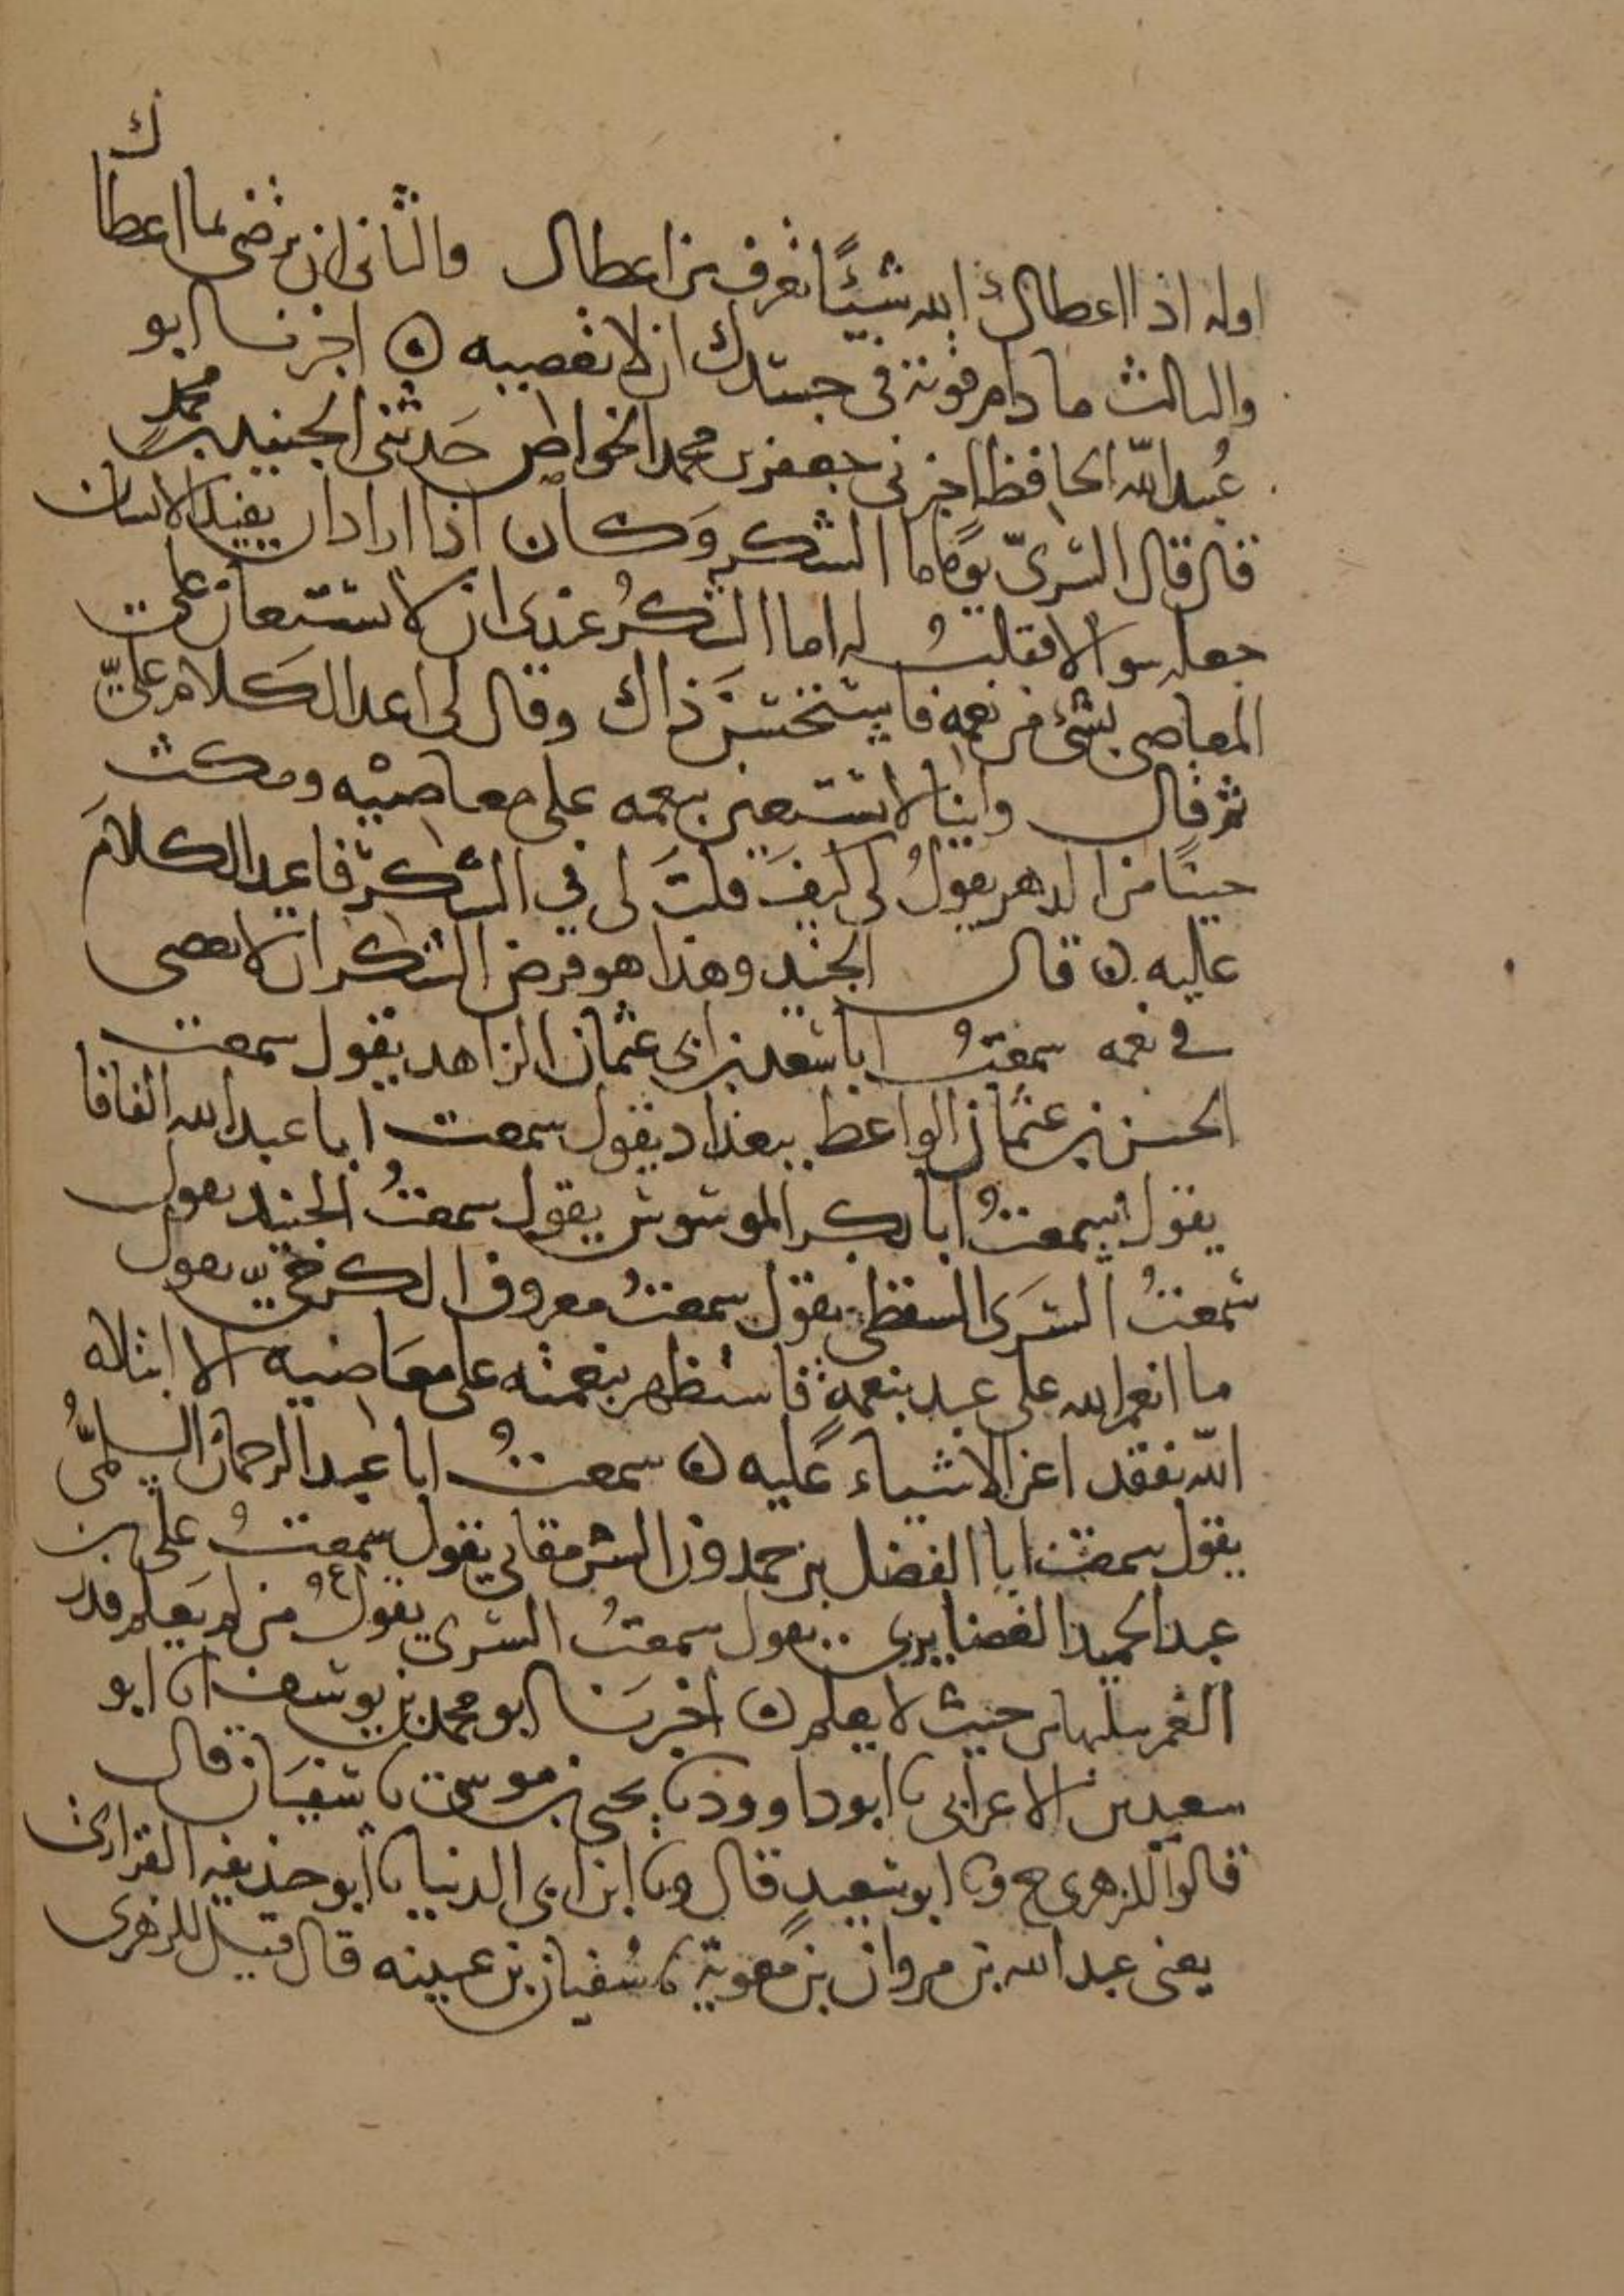 اوله اذا اعطاك الله شيئًا تعرف من اعطاك والثاني ان ترضى بما اعطاك
والثالث ما دام قوته في جسدك ان لا تعصيه ه اخبرنا ابو
عبد الله الحافظ اخبرني جعفر بن محمد الخواص حَدثني الجنيد بن محمد
قال قال السَّرِيّ يومًا ما الشكر وَكان اذا اراد ان يفيد الانسان
جعله سوالا فقلتُ له اما الشكرُ عندي ان لا يستعان على
المعاصي بشيء من نعمه فاستحسن ذاك وقال لي اعد الكلام عليَّ
ثم قال واينا لا يستعين بنعمه على معاصيه ومكث
حينًا من الدهر يقولُ لي كيفَ قلتَ لي في الشكر فاعيد الكلامَ
عليه ه قال الجنيد وهذا هو فرض الشكر ان لا يعصى
في نعمه سمعتُ ابا سعد بن ابي عثمان الزاهد يقول سمعت
الحسن بن عثمان الواعظ ببغداد يقول سمعت ابا عبد الله
يقول سمعتُ ابا بكر الموسوس يقول سمعتُ الجنيد يقول
سمعتُ السَرى السقطي يقول سمعتُ معروف الكرخيّ يقول
ما انعم الله على عبد بنعمةٍ فاستظهر بنعمته على معَاصيه الا ابتلاه
الله بفقد اعز الاشياء عليه ه سمعتُ ابا عبد الرحمان السلميُّ
يقول سمعت ابا الفضل بن حمدون الشرمقاني يقول سمعتُ علي بن
عبد الحميد الغضايري يقول سمعتُ السري يقولُ من لم يعلم قدر
النعم سلبها من حيث لا يعلم ه اخبرَنا ابو محمد بن يوسف انا ابو
سعيد بن الاعرابي نا ابو داوود نا يحيى بن موسى نا سفيان قال
قالوا للزهري ح ونا ابو سعيد قال ونا ابن ابي الدنيا نا ابو حذيفه الفزاري
يعني عبد الله بن مروان بن معوية نا سُفيان بن عيينه قال قيل للزهري